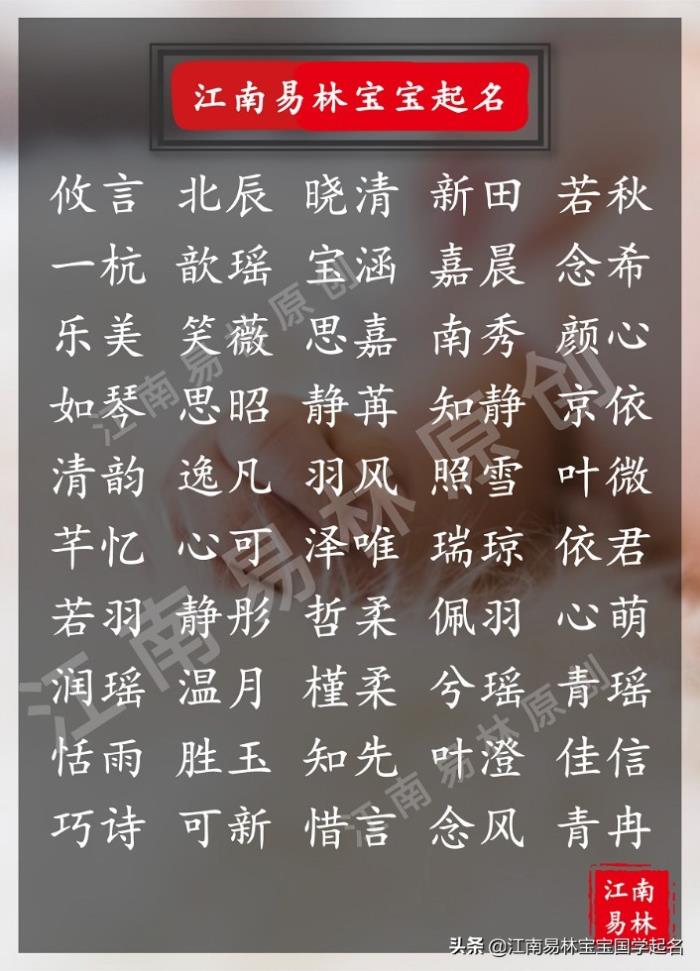 江南易林宝宝起名
攸言 北辰 晓清 新田 若秋
一杭 歆瑶 宝涵 嘉晨 念希
乐美 笑薇 思嘉 南秀 颜心
如琴 思昭 静苒 知静 京依
清韵 逸凡 羽风 照雪 叶微
芊忆 心可 泽唯 瑞琼 依君
若羽 静彤 哲柔 佩羽 心萌
润瑶 温月 槿柔 兮瑶 青瑶
恬雨 胜玉 知先 叶澄 佳信
巧诗 可新 惜言 念风 青冉
江南易林原创
江南易林原创
江南易林原创
江南
易林
头条 @江南易林宝宝国学起名